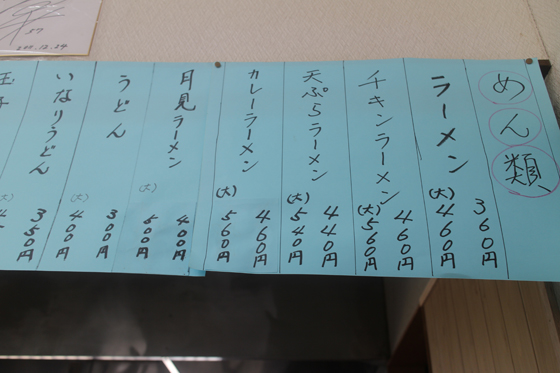 めん類
ラーメン
360円
(大)460円
チキンラーメン
460円
(大)560円
天ぷらラーメン
440円
(大)540円
カレーラーメン
460円
(大)560円
月見ラーメン
400円
(大)500円
うどん
300円
(大)400円
いなりうどん
350円
玉子